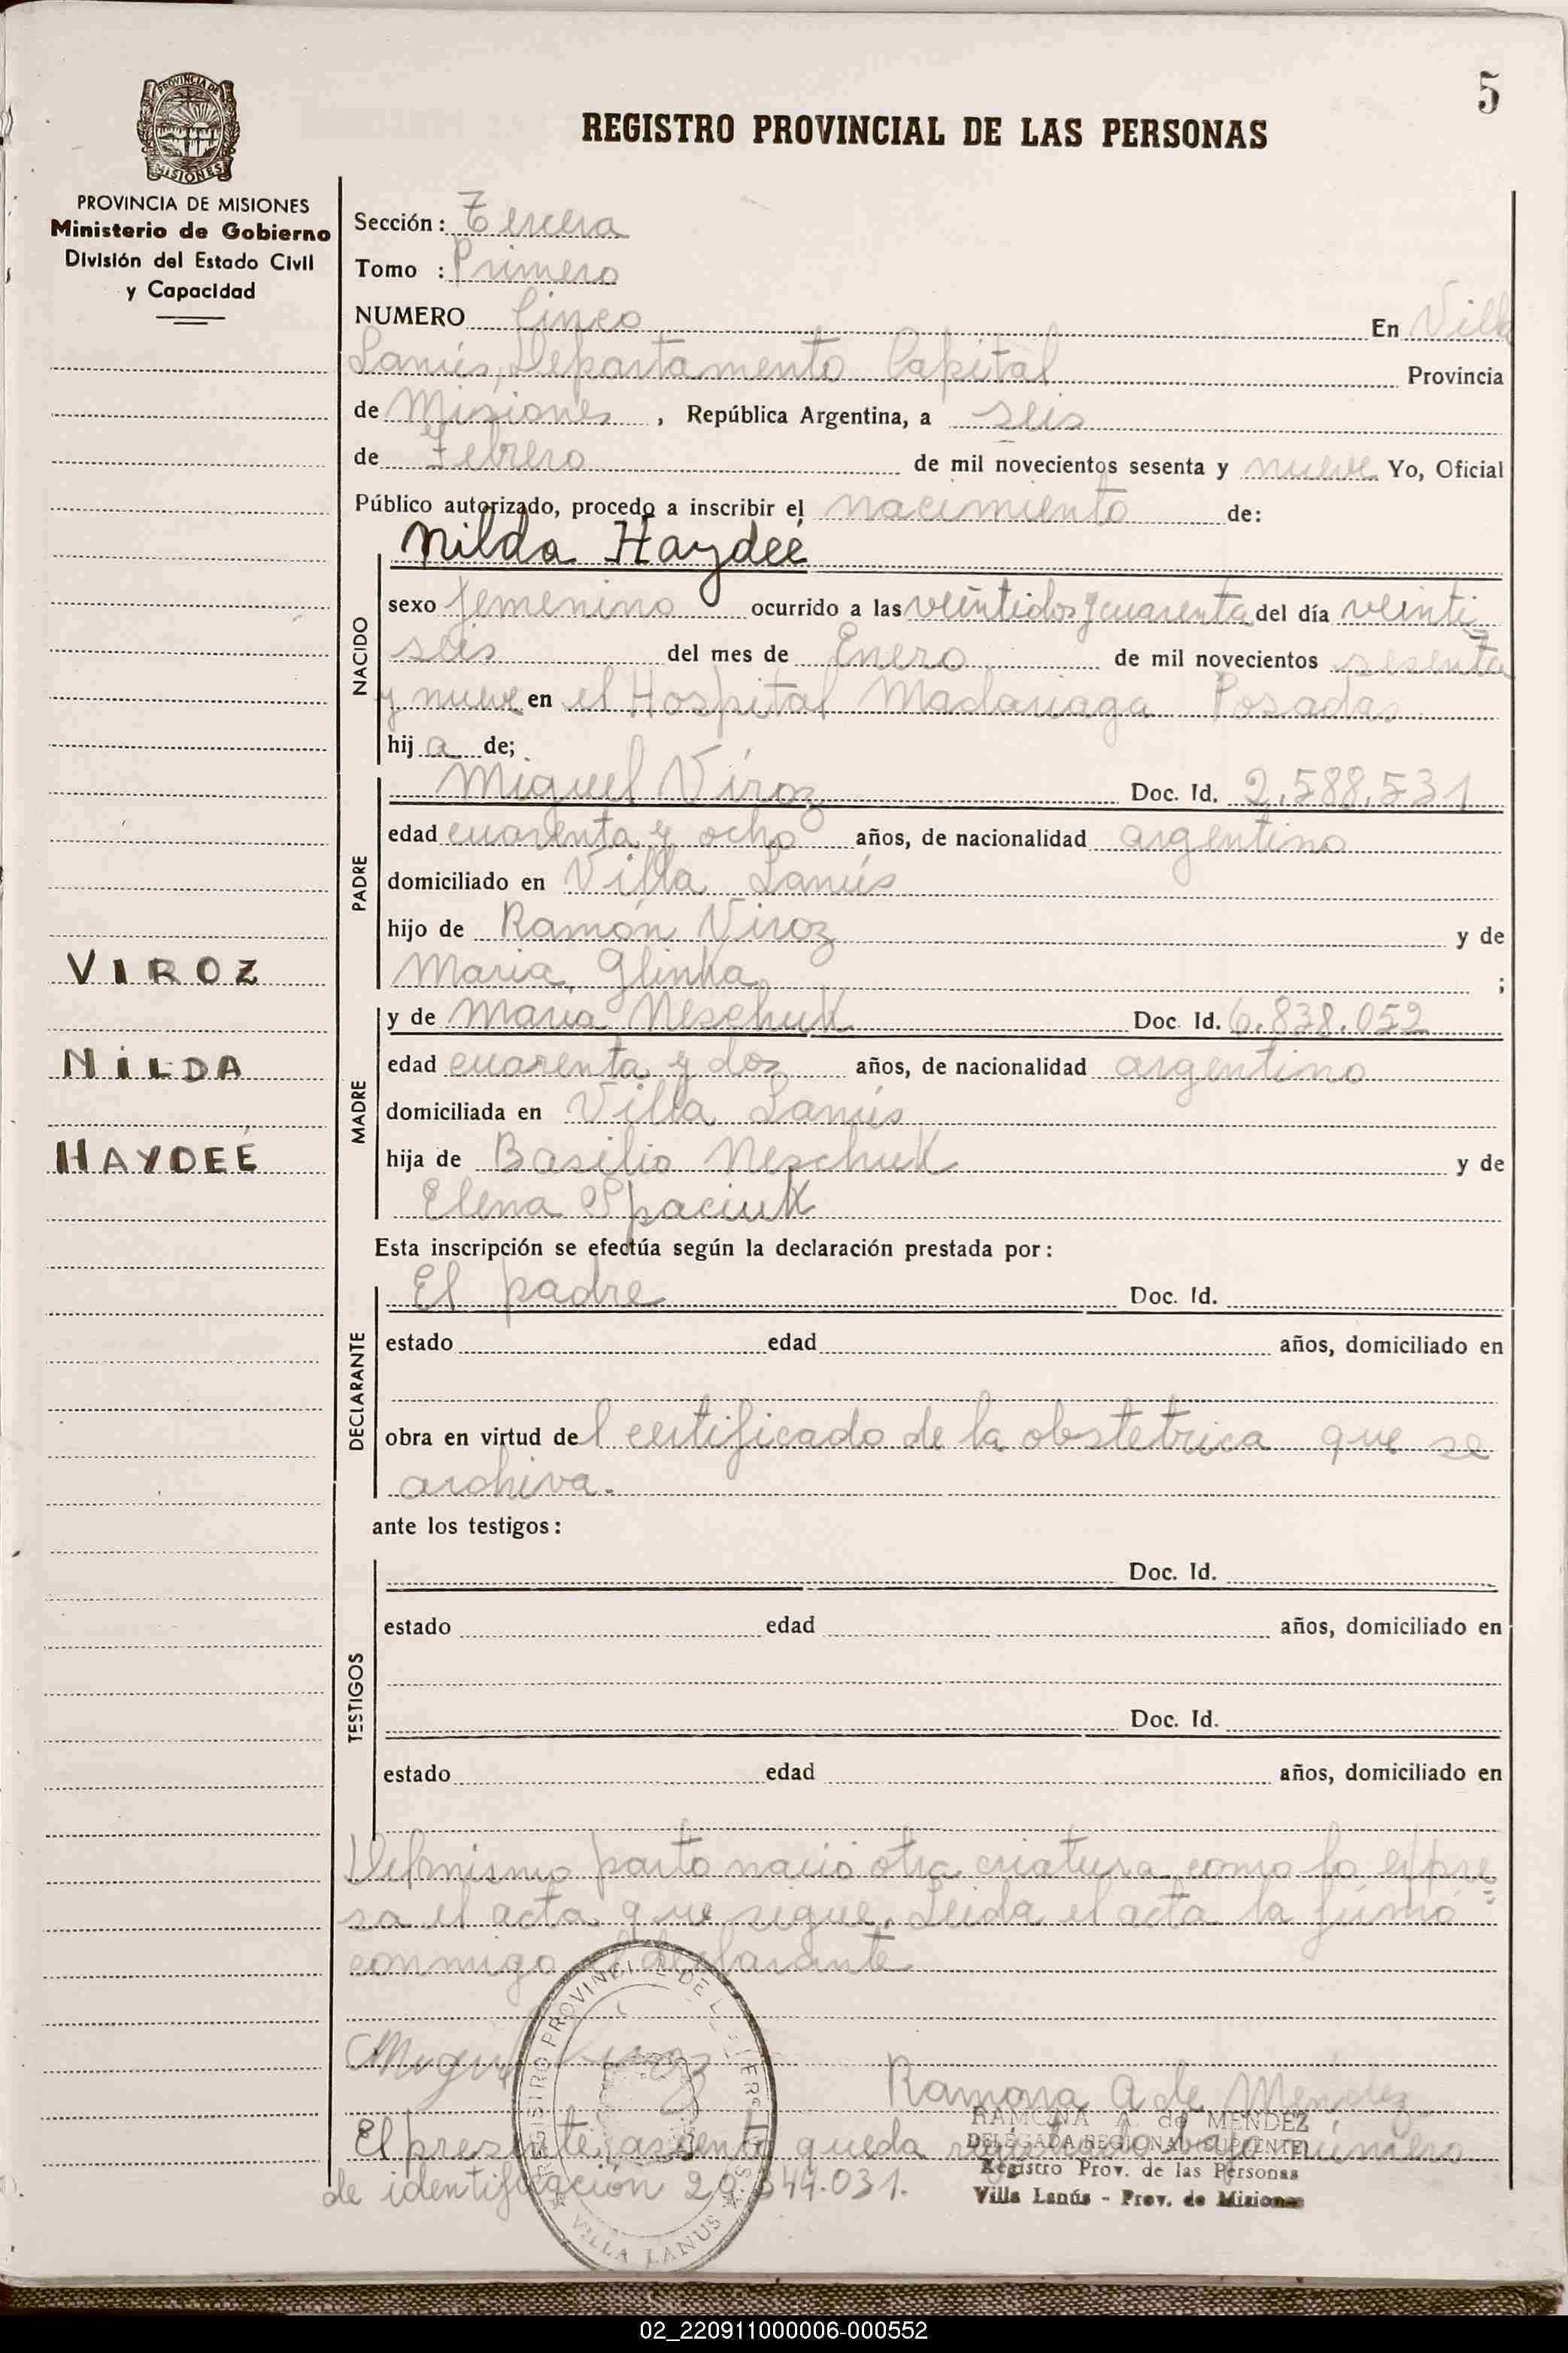 5
PROVINCIA DE
MISIONES
REGISTRO PROVINCIAL DE LAS PERSONAS
PROVINCIA DE MISIONES
Ministerio de Gobierno
División del Estado Civil
y Capacidad
VIROZ
NILDA
HAYDEÉ
Sección: Tercera
Tomo : Primero
NUMERO Cinco En Villa
Lanús, Departamento Capital Provincia
de Misiones, República Argentina, a seis
de Febrero de mil novecientos sesenta y nueve Yo, Oficial
Público autorizado, procedo a inscribir el nacimiento de:
NACIDO
Nilda Haydeé
sexo femenino ocurrido a las veintidos y cuarenta del día veinti
seis del mes de Enero de mil novecientos sesenta
y nueve en el Hospital Madariaga Posadas
hij a de;
PADRE
Miguel Víroz Doc. Id. 2.588.531
edad cuarenta y ocho años, de nacionalidad argentino
domiciliado en Villa Lanús
hijo de Ramón Viroz y de
Maria Glinka ;
MADRE
y de María Neschuk Doc. Id. 6.838.052
edad cuarenta y dos años, de nacionalidad argentino
domiciliada en Villa Lanús
hija de Basilio Neschuk y de
Elena Spaciuk
Esta inscripción se efectúa según la declaración prestada por:
DECLARANTE
El padre Doc. Id.
estado edad años, domiciliado en
obra en virtud del certificado de la obstetrica que se
archiva.
ante los testigos:
TESTIGOS
Doc. Id.
estado edad años, domiciliado en
Doc. Id.
estado edad años, domiciliado en
Del mismo parto nació otra criatura como lo expre=
sa el acta que sigue. Leida el acta la firmó
conmigo el declarante
Miguel Viroz
REGISTRO PROVINCIAL DE LAS PERSONAS
VILLA LANUS
Ramona A de Méndez
RAMONA A. de MENDEZ
DELEGADA REGIONAL (SUPLENTE)
Registro Prov. de las Personas
Villa Lanús - Prov. de Misiones
El presente asiento queda registrado bajo número
de identificación 20.344.031.
02_220911000006-000552